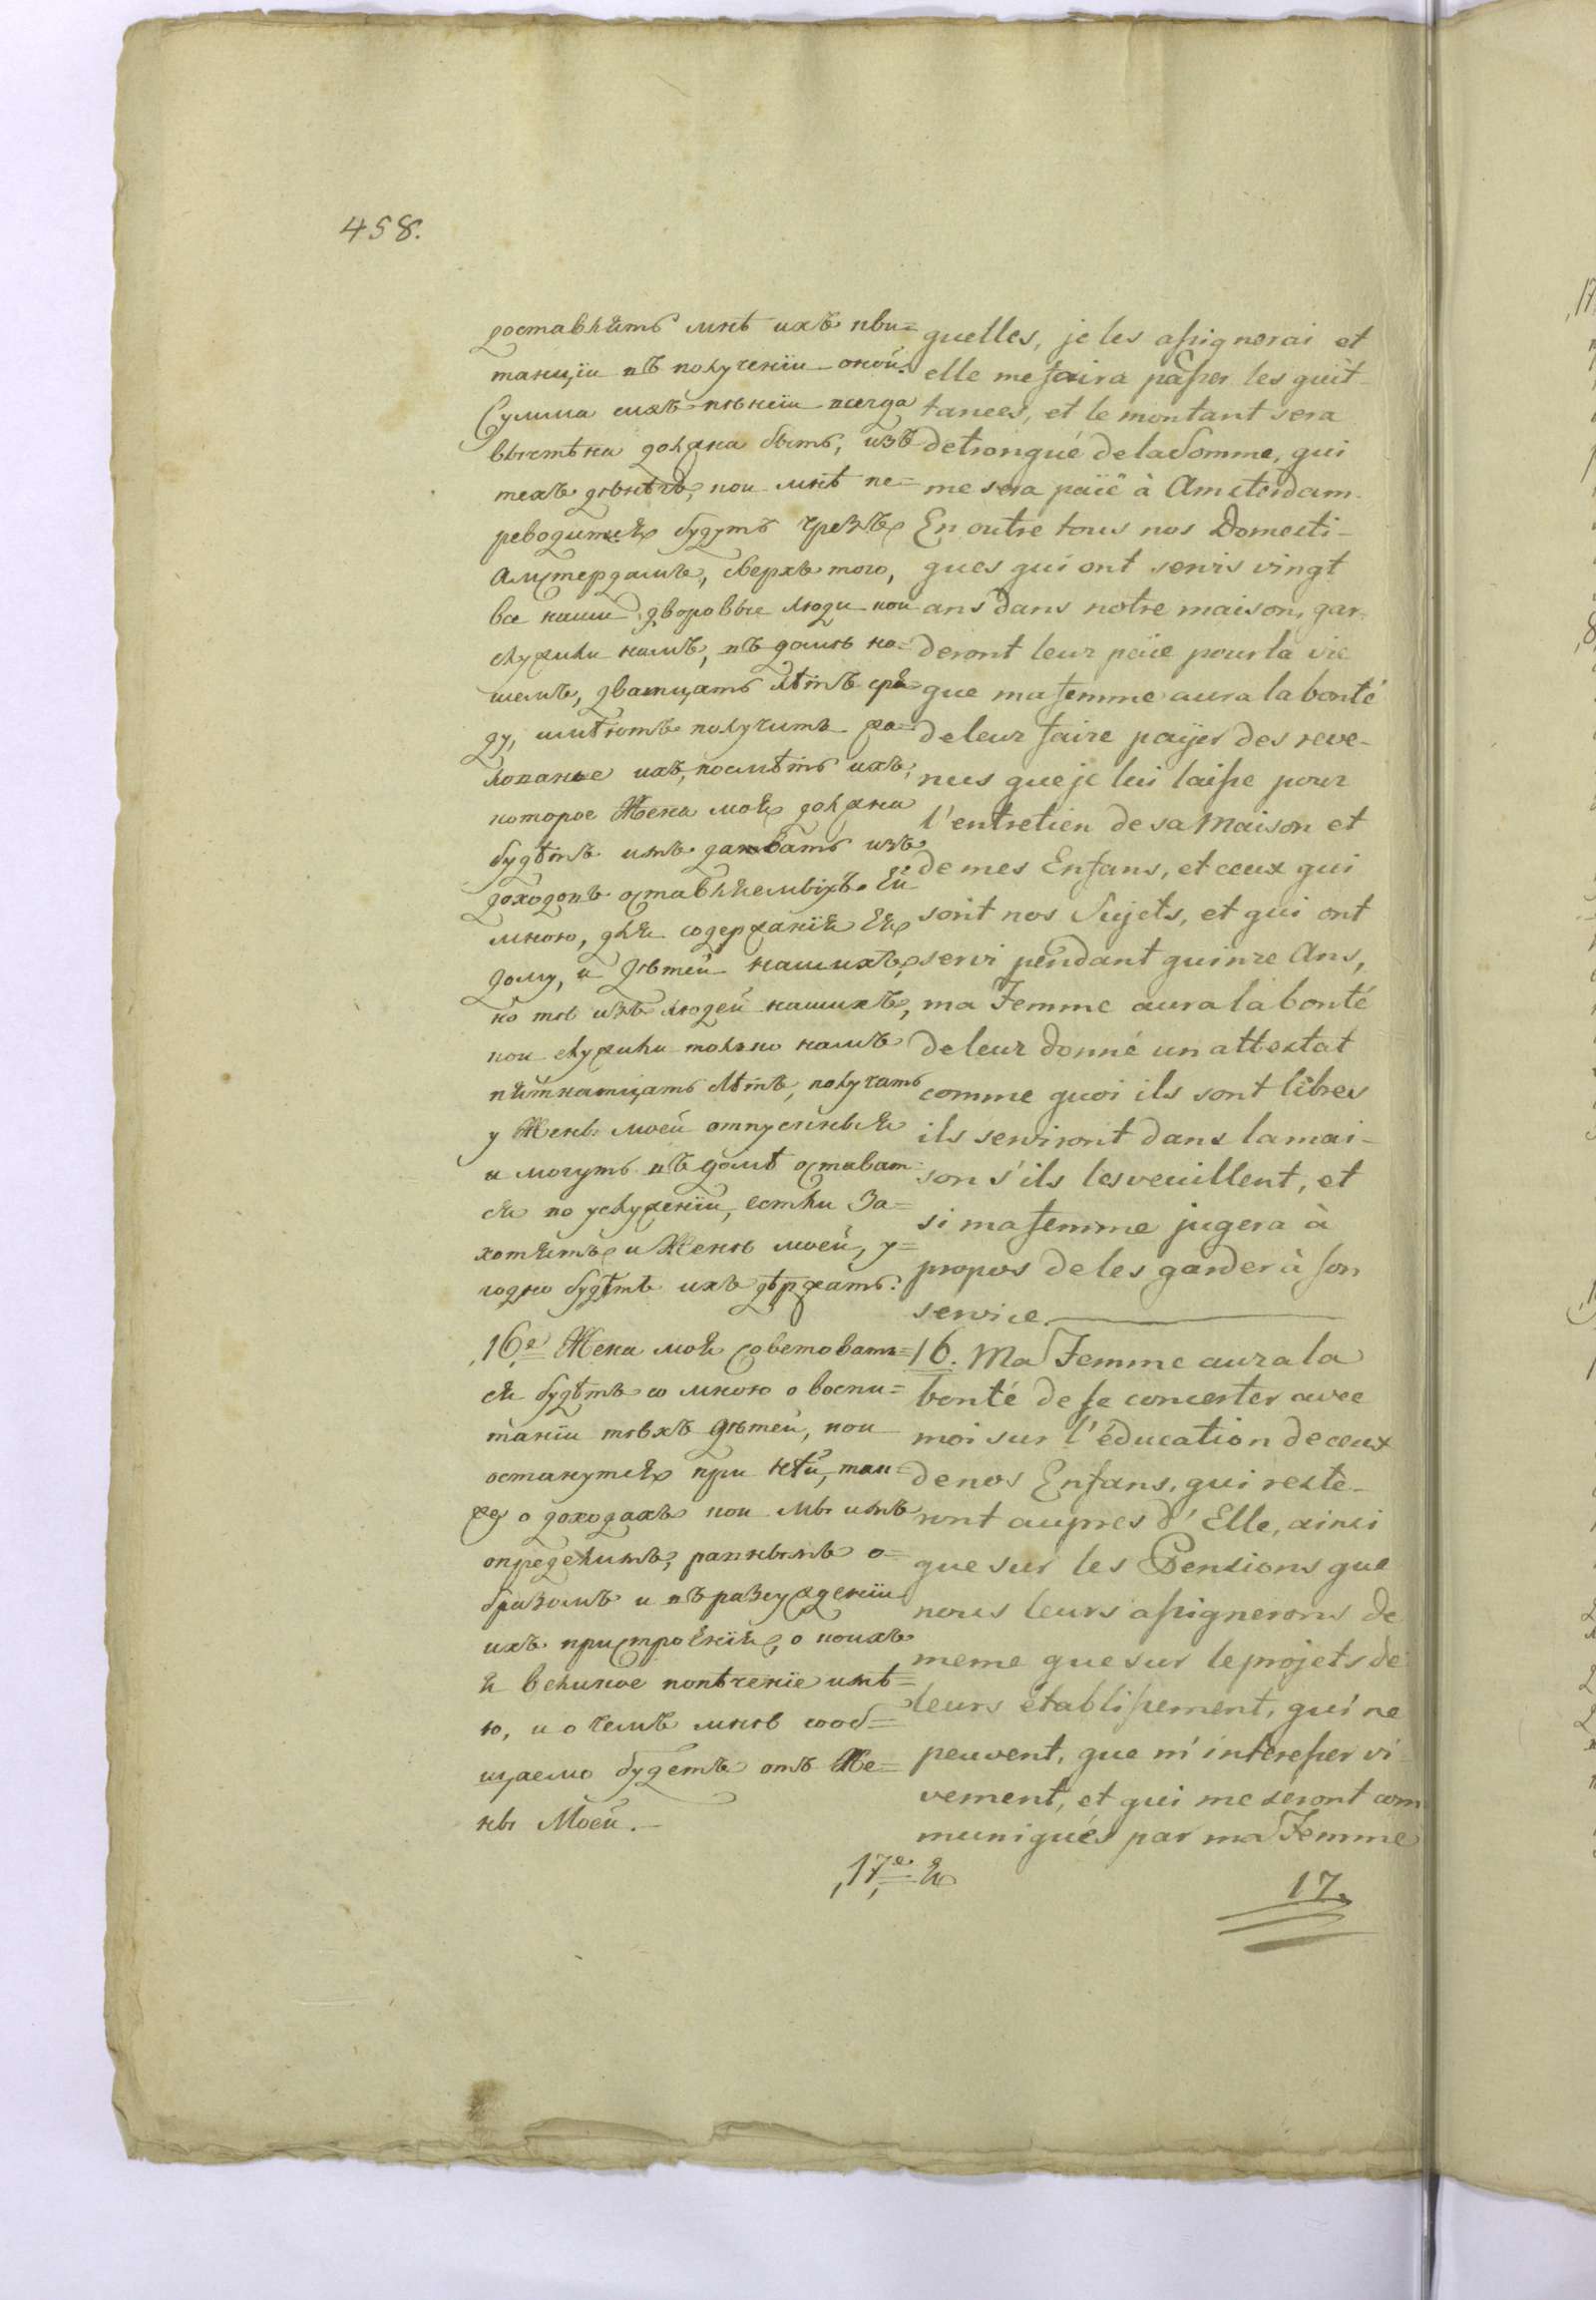 458.
доставлять мнѣ ихъ кви=
танціи въ полученіи оной.
Сумма сихъ пѣнсіи всегда
вычтѣна должна быть, изъ
техъ дѣнѣгъ, кои мнѣ пе=
реводится будутъ чрезъ
Амстердамъ, сверхъ того,
все наши дворовые люди кои
служили намъ, въ домѣ на=
шемъ, дватцать лѣтъ сря=
ду, имѣютъ получить жа=
лованье ихъ, посмѣть ихъ,
которое Жена моя должна
будѣтъ имъ давать изъ
доходовъ оставляемыхъ Ей
мною, для содержанія Ея
дому, и дѣтей нашихъ,
но тѣ изъ людей нашихъ,
кои служили только намъ
пятнатцать лѣтъ, получатъ
у Жены моей отпускныя
и могутъ въ домѣ остават=
ся по услуженіи, естли За=
хотятъ и Женѣ моей, у=
годно будѣтъ ихъ дѣржать.
16е Жена моя советовать=
ся будѣтъ со мною о воспи=
таніи тѣхъ дѣтей, кои
останутся при нѣй, так=
же о доходахъ кои мы имъ
определимъ, равнымъ о=
бразомъ и въ разсужденіи
ихъ пристроенія, о коихъ
я великое попѣченіе имѣ=
ю, и о чемъ мнѣ сооб=
щаемо будетъ отъ Же=
ны Моей.
17е я
quelles, je les assignerai et
elle me faira passer les quit-
tances, et le montant sera
detronqué de la Somme, qui
me sera païé à Amsterdam.
En outre tous nos Domesti-
ques qui ont servis vingt
ans dans notre maison, gar-
deront leur païe pour la vie
que ma femme aura la bonté
de leur faire payer des reve-
nus que je lui laisse pour
l'entretien de sa Maison et
de mes Enfans, et ceux qui
sont nos Sujets, et qui ont
servi pendant quinze Ans,
ma Femme aura la bonté
de leur donné un attestat
comme quoi ils sont libres
ils serviront dans la mai-
son s'ils les veuillent, et
si ma femme jugera à
propos de les garder à son
service.
16. Ma Femme aura la
bonté de se concerter avec
moi sur l'éducation de ceux
de nos Enfans, qui reste-
ront aupres d'Elle, ainsi
que sur les Pensions que
nous leurs assignerons de
meme que sur le projets de
leurs établissement, qui ne
peuvent, que m'interesser vi-
vement, et qui me seront com
muniqués par ma Femme
17.